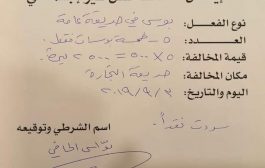 نوع الفعل: بوس في حديقة عامة
العدد: ٥ - خمسة بوسات فقط
قيمة المخالفة: ٥ × ٥٠٠ = ٢٥٠٠ ليرة
مكان المخالفة: حديقة التجارة
اليوم والتاريخ: ٢٠١٩/٩/٣
سددت نقداً.
اسم الشرطي وتوقيعه